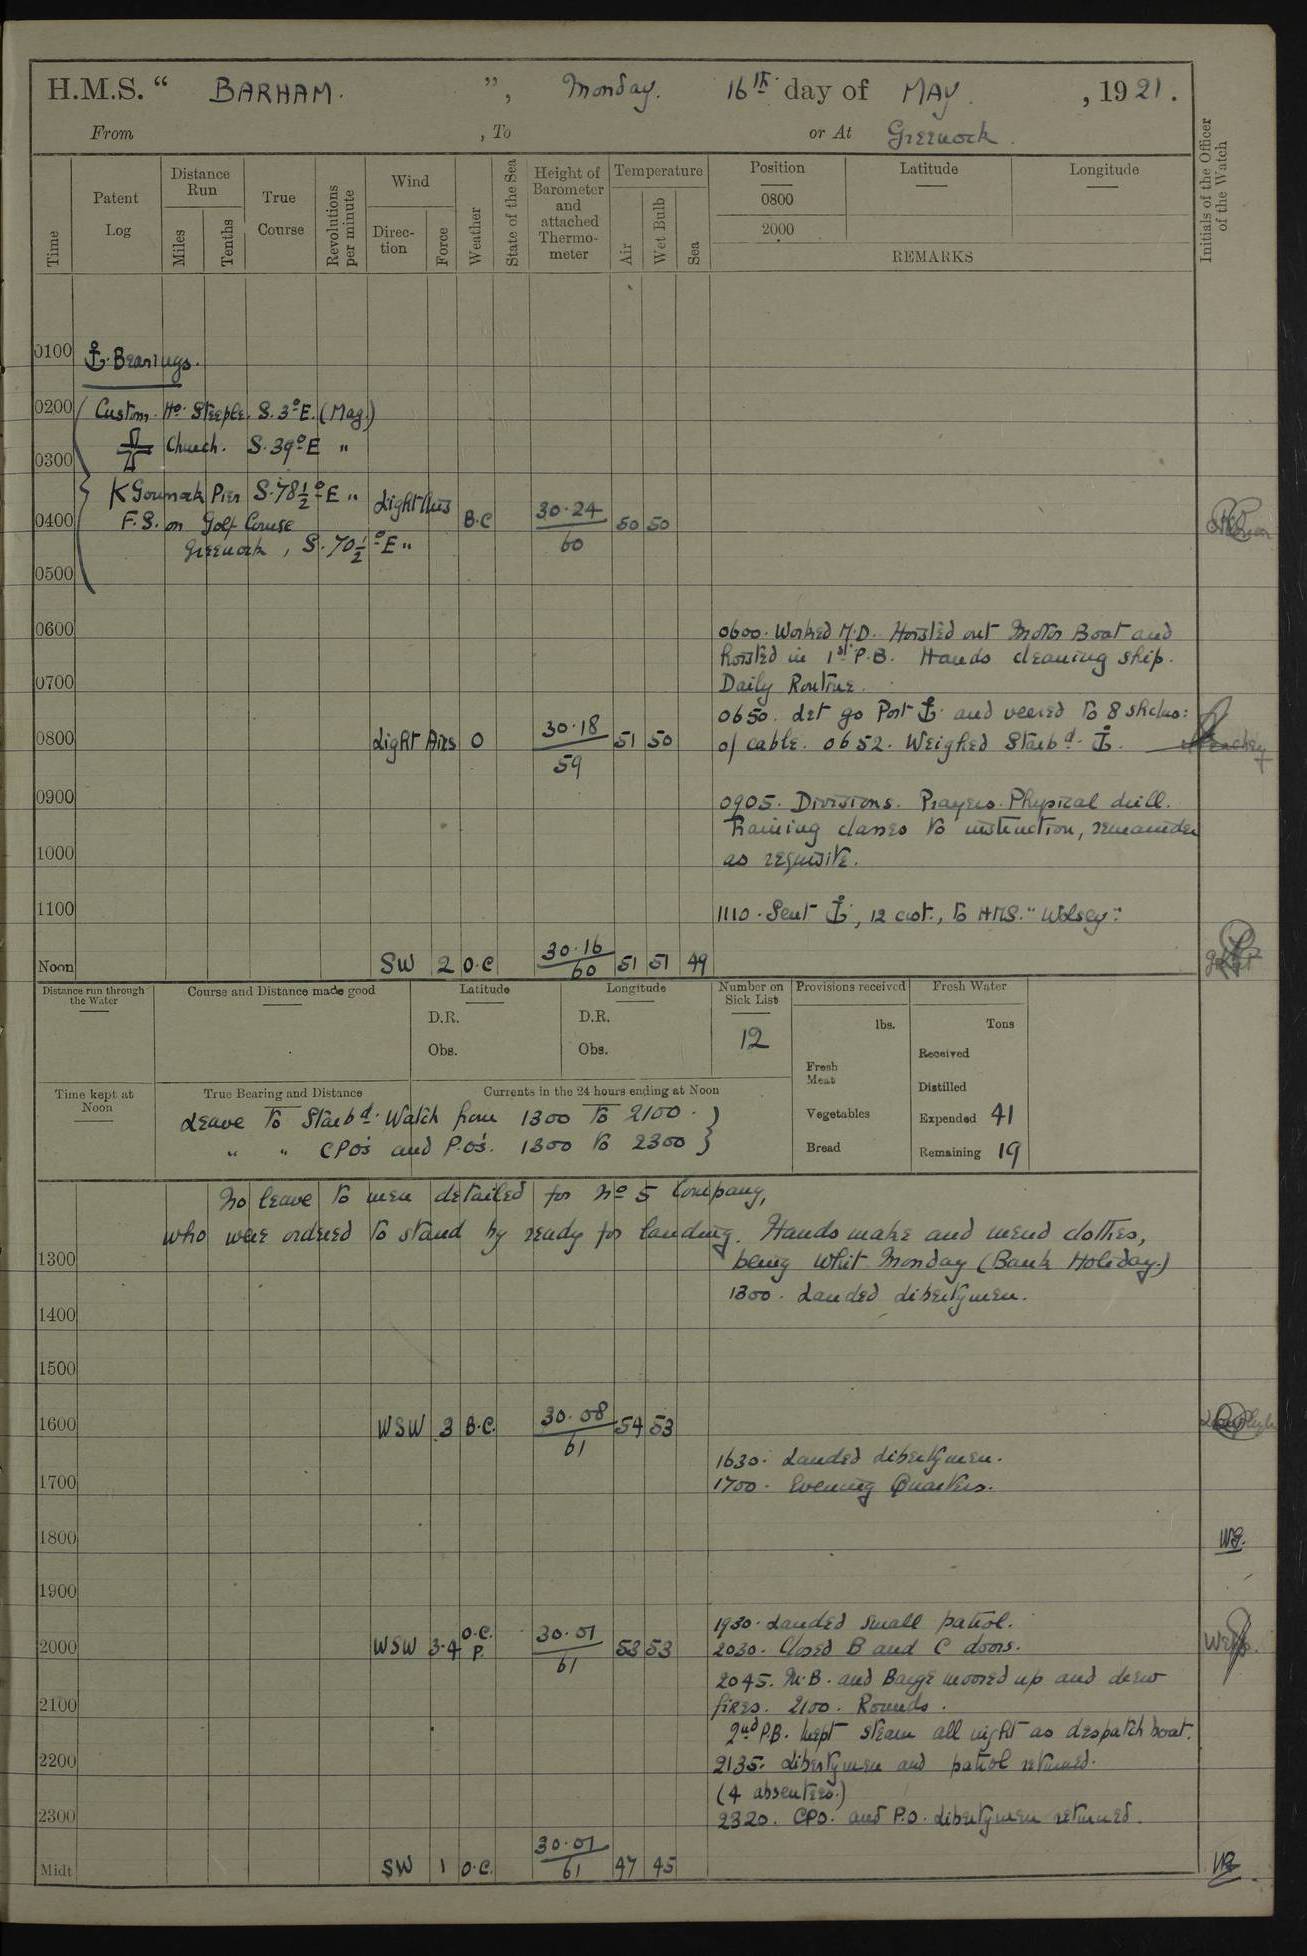 H.M.S. “ BARHAM. ”, Monday. 16th day of MAY. , 1921.
From , To or At Greenock.
Time
Patent Log
Distance Run
Miles
Tenths
True Course
Revolutions per minute
Wind
Direction
Force
Weather
State of the Sea
Height of Barometer and attached Thermometer
Temperature
Air
Wet Bulb
Sea
Position
0800
2000
Latitude
Longitude
REMARKS
Initials of the Officer of the Watch
0100 ⚓ Bearings.
0200 Custom. Ho. Steeple. S. 3° E. (Mag.)
Church. S. 39° E "
0300
Gourock Pier S. 78½° E "
0400 F.S. on Golf Course Light Airs B.C 30.24 / 60 50 50
Greenock, S. 70½° E "
0500
0600
0600. Worked M.D. Hoisted out Motor Boat and
hoisted in 1st P.B. Hands cleaning ship.
0700 Daily Routine.
0650. Let go Port ⚓ and veered to 8 shcles:
0800 Light Airs O 30.18 / 59 51 50 of cable. 0652. Weighed Starbd. ⚓.
0900 0905. Divisions. Prayers. Physical drill.
Training classes to instruction, remainder
1000 as requisite.
1100 1110. Sent ⚓, 12 cwt., to HMS. "Wolsey".
Noon SW 2 O.C 30.16 / 60 51 51 49
Distance run through the Water
Course and Distance made good
Latitude
D.R.
Obs.
Longitude
D.R.
Obs.
Number on Sick List
12
Provisions received
lbs.
Fresh Meat
Vegetables
Bread
Fresh Water
Tons
Received
Distilled
Expended 41
Remaining 19
Time kept at Noon
True Bearing and Distance
Currents in the 24 hours ending at Noon
Leave to Starbd. Watch from 1300 to 2100.
" " CPOs and P.Os. 1300 to 2300
No leave to men detailed for No 5 Company,
who were ordered to stand by ready for landing. Hands make and mend clothes,
1300 being Whit Monday (Bank Holiday.)
1300. Landed libertymen.
1400
1500
1600 WSW 3 B.C. 30.08 / 61 54 53
1630. Landed libertymen.
1700 1700. Evening Quarters.
1800
1900
1930. Landed small patrol.
2000 WSW 3.4 O.C. P. 30.01 / 61 53 53 2030. Closed B and C doors.
2045. M.B. and Barge moored up and drew
2100 fires. 2100. Rounds.
2nd P.B. kept steam all night as despatch boat.
2200 2135. Libertymen and patrol returned.
(4 absentees.)
2300 2320. CPO. and P.O. libertymen returned.
Midt SW 1 O.C. 30.01 / 61 47 45